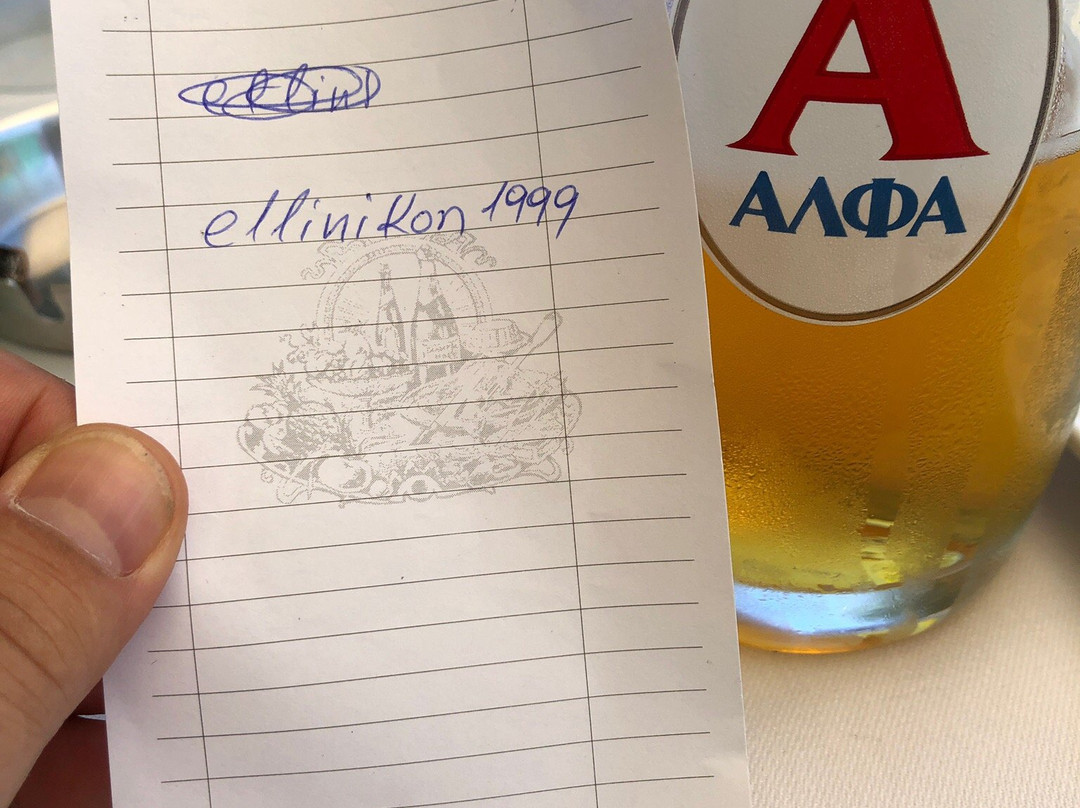 ellinikon 1999
A
ΑΛΦΑ